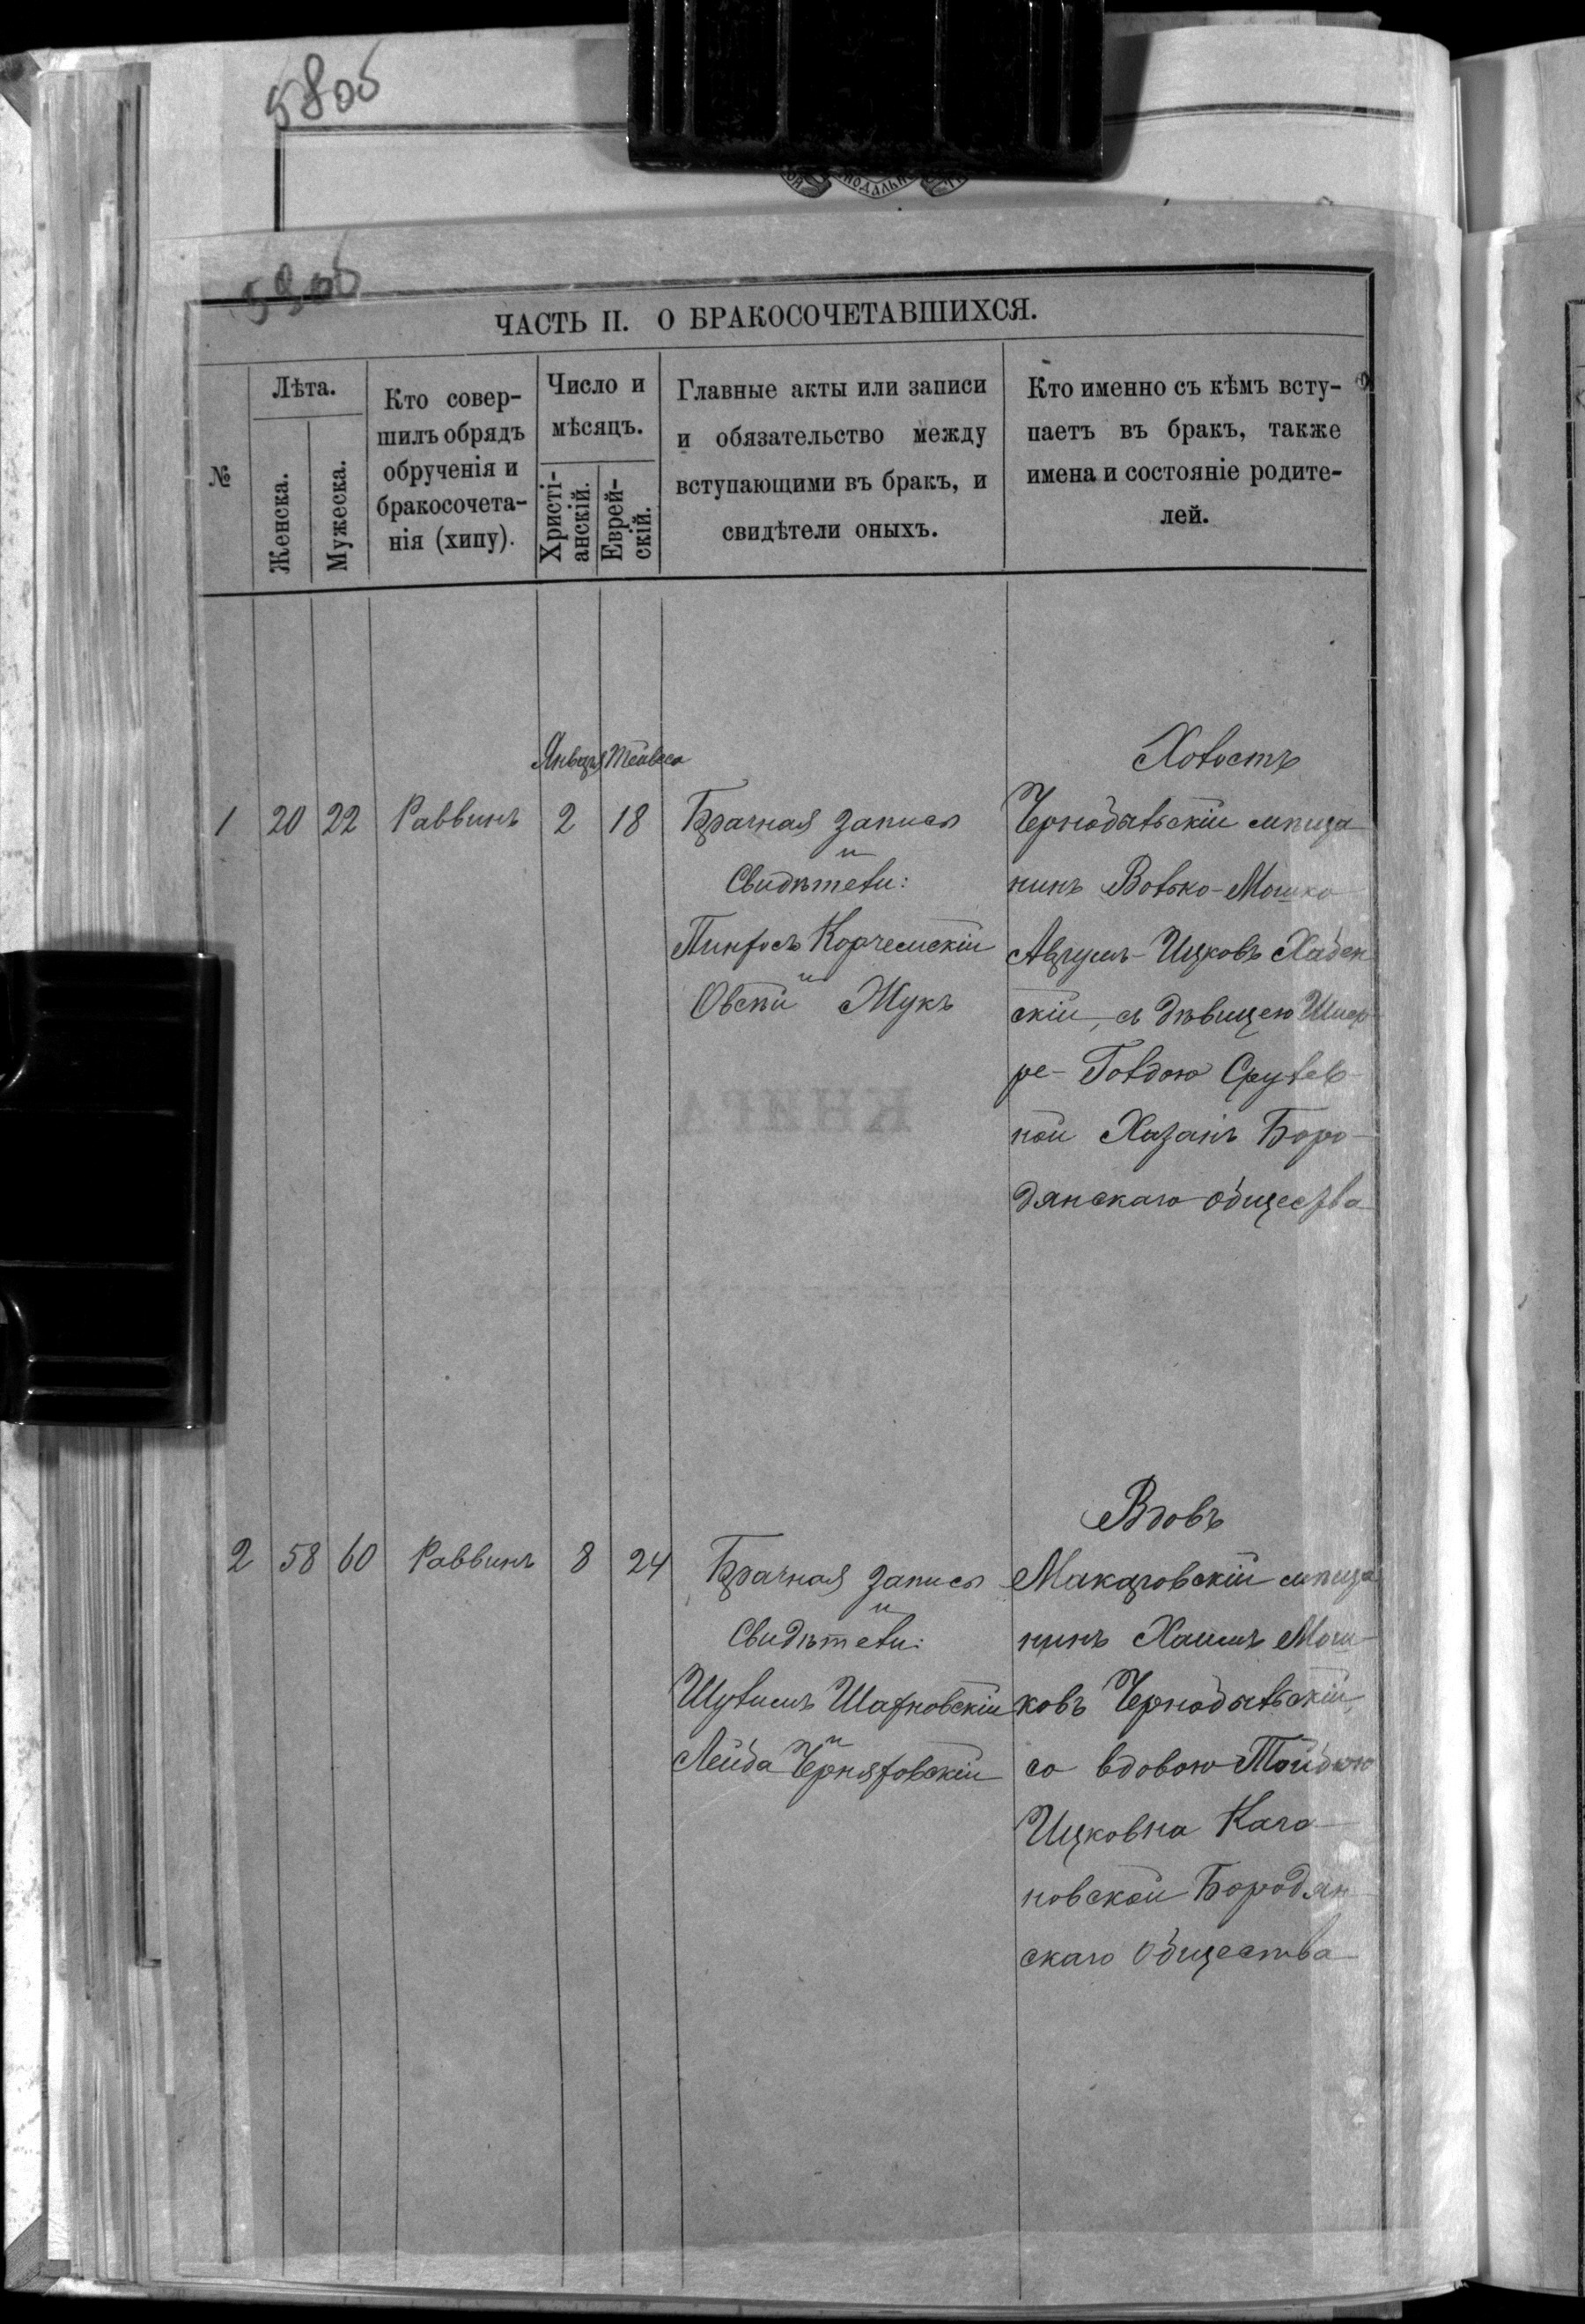 58об
59об
ЧАСТЬ II. О БРАКОСОЧЕТАВШИХСЯ.
№
Лѣта.
Женска.
Мужеска.
Кто совер-
шилъ обрядъ
обрученія и
бракосочета-
нія (хипу).
Число и
мѣсяцъ.
Христі-
анскій.
Еврей-
скій.
Главные акты или записи
и обязательство между
вступающими въ бракъ, и
свидѣтели оныхъ.
Кто именно съ кѣмъ всту-
паетъ въ бракъ, также
имена и состояніе родите-
лей.
Января Тейвеса
1 20 22 Раввинъ 2 18
Брачная запись
и
Свидѣтели:
Пинхосъ Корчемскій
и
Овсій Жукъ
Холостъ
Чернобыльскій мѣща
нинъ Волько-Мошко
Аврумъ-Ицковъ Хабен
скій, съ дѣвицею
ре-Голдою Срулев-
ной Хазанъ Боро-
дянскаго общества
2 58 60 Раввинъ 8 24
Брачная запись
и
Свидѣтели:
Шулимъ Шахновскій
и
Лейба Черняховскій
Вдовъ
Макаровскій мѣща
нинъ Хаимъ Мош-
ковъ Чернобыльскій,
со вдовою Тойбою
Ицковна Кага-
новской Бородян
скаго общества
КНИГА